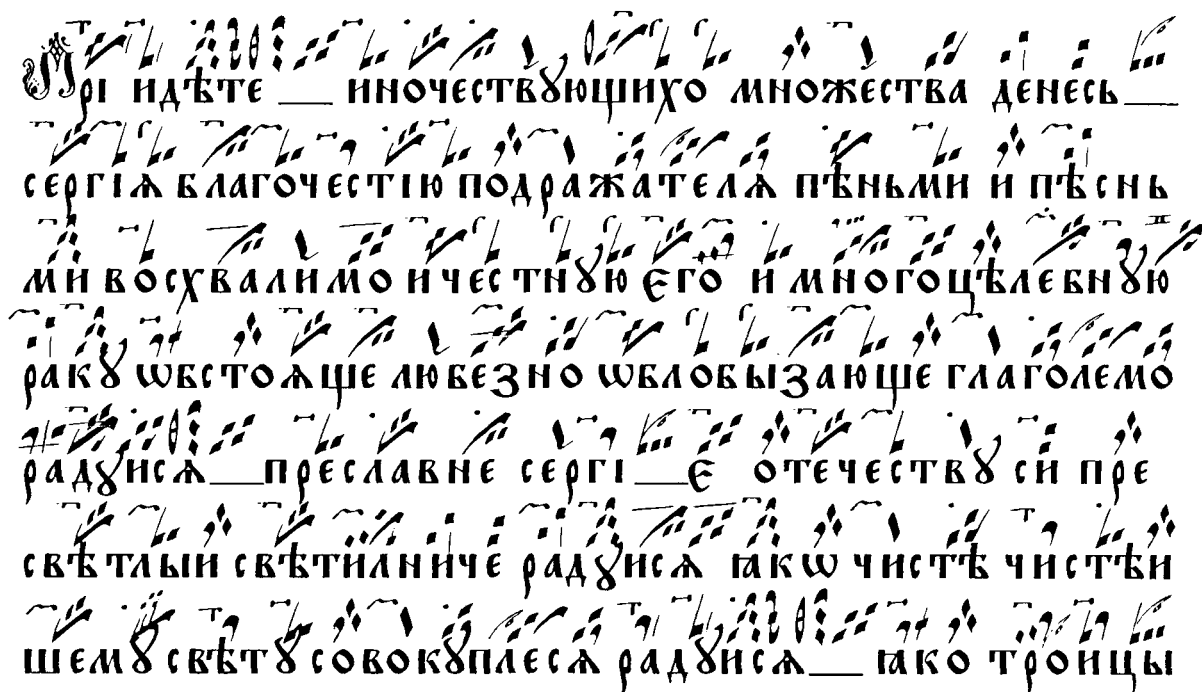 Прі идѣте ___ иночествꙋющихо множества денесь___
сергіѧ благочестію подражателѧ пѣньми и пѣснь
ми восхвалимо и честнꙋю єго и многоцѣлебнꙋю
ракꙋ ѡбстоѧще любезно ѡблобызающе глаголемо
радꙋисѧ___преславне сергі___є отечествꙋ си пре
свѣтлыи свѣтилниче радꙋисѧ ꙗкѡ чистѣ чистѣи
шемꙋ свѣтꙋ совокꙋплесѧ радꙋисѧ___ ꙗко троицы